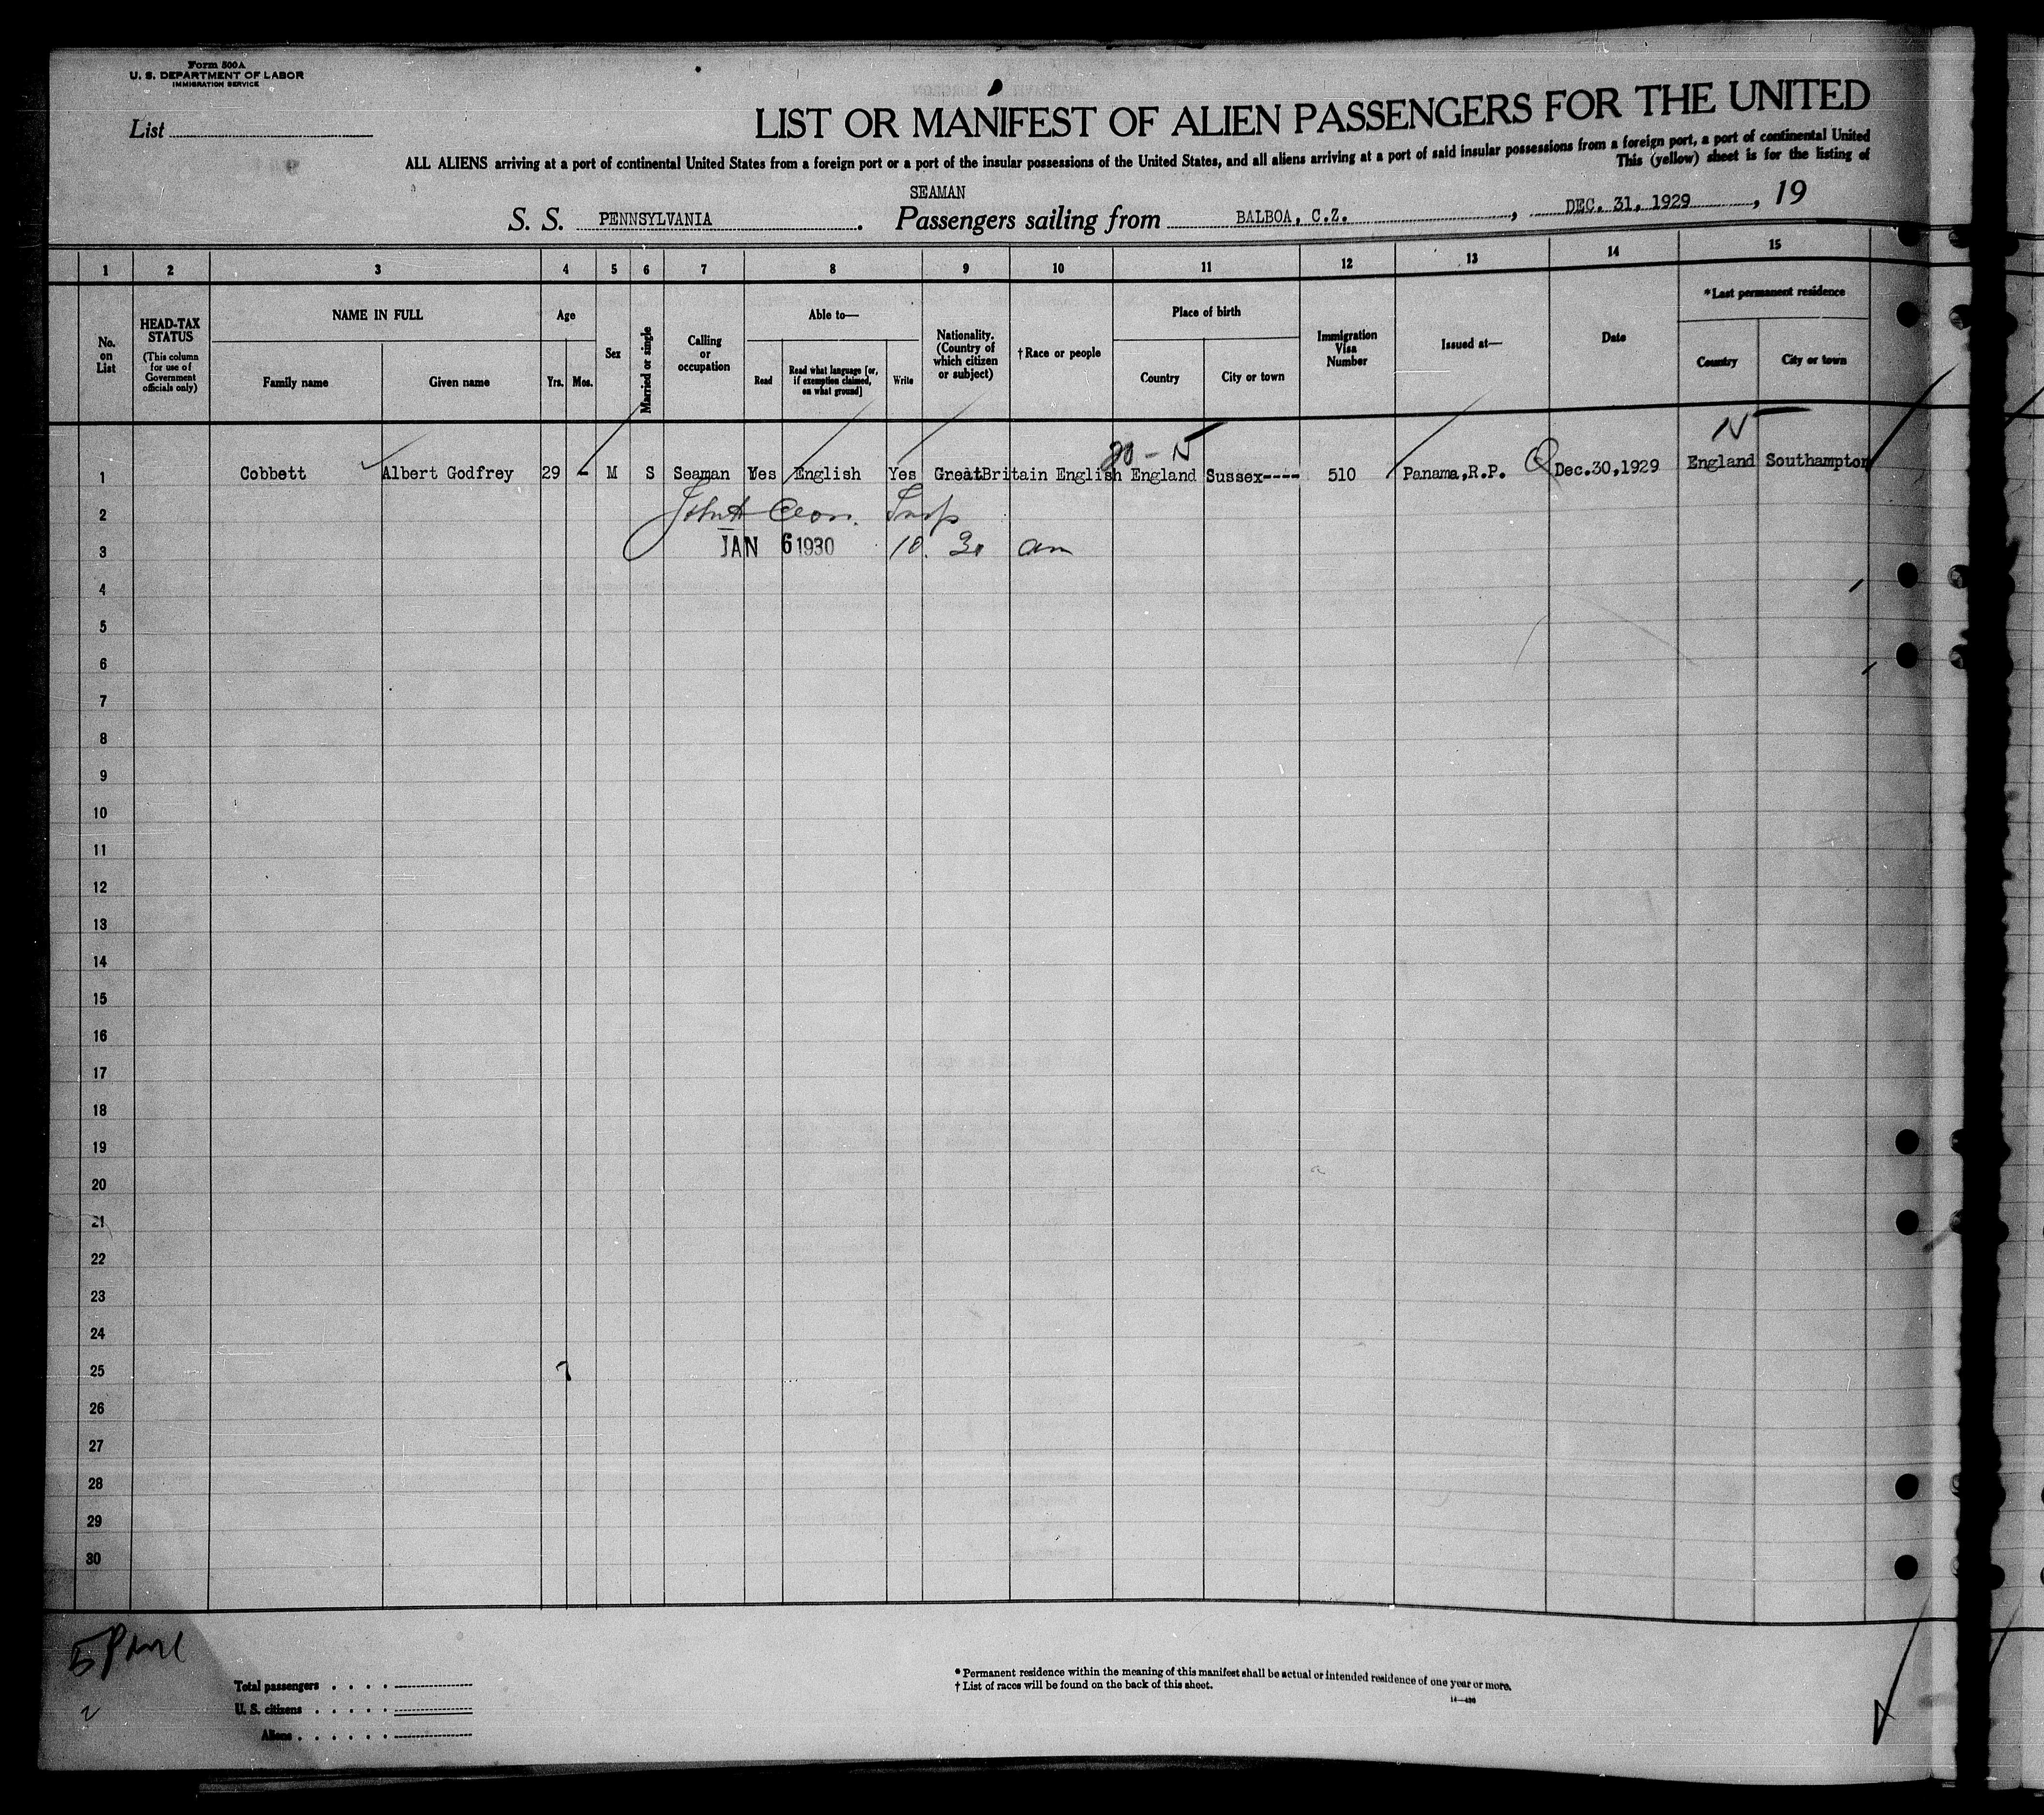 Form 500A
U. S. DEPARTMENT OF LABOR
IMMIGRATION SERVICE
List
LIST OR MANIFEST OF ALIEN PASSENGERS FOR THE UNITED
ALL ALIENS arriving at a port of continental United States from a foreign port or a port of the insular possessions of the United States, and all aliens arriving at a port of said insular possessions from a foreign port, a port of continental United
This (yellow) sheet is for the listing of
SEAMAN
S. S. PENNSYLVANIA. Passengers sailing from BALBOA, C.Z., DEC. 31, 1929, 19
1 2 3 4 5 6 7 8 9 10 11 12 13 14 15
No. on List
HEAD-TAX STATUS
(This column for use of Government officials only)
NAME IN FULL
Family name
Given name
Age
Yrs. Mos.
Sex
Married or single
Calling or occupation
Able to—
Read
Read what language [or, if exemption claimed, on what ground]
Write
Nationality. (Country of which citizen or subject)
†Race or people
Place of birth
Country
City or town
Immigration Visa Number
Issued at—
Date
*Last permanent residence
Country
City or town
N
1 Cobbett Albert Godfrey 29 - M S Seaman Yes English Yes GreatBritain English England Sussex---- 510 Panama,R.P. Dec.30,1929 England Southampton
2
3 JAN 6 1930 10. 30 am
4
5
6
7
8
9
10
11
12
13
14
15
16
17
18
19
20
21
22
23
24
25
26
27
28
29
30
Total passengers
U. S. citizens
Aliens
*Permanent residence within the meaning of this manifest shall be actual or intended residence of one year or more.
†List of races will be found on the back of this sheet.